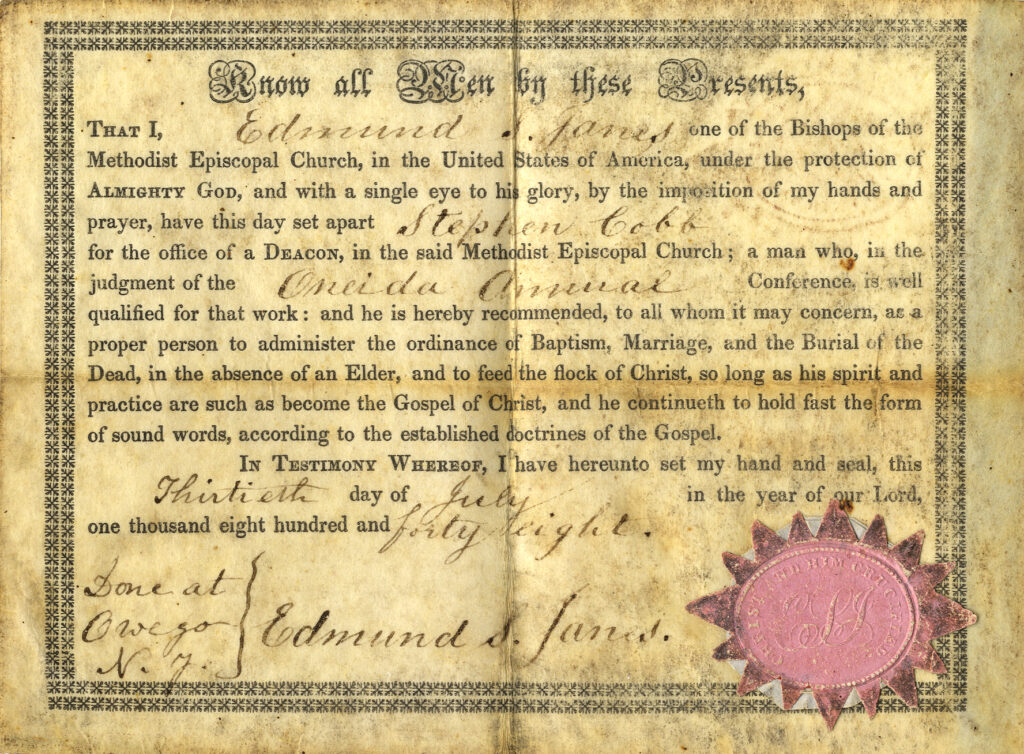 Know all Men by these Presents,
THAT I, Edmund S. Janes one of the Bishops of the
Methodist Episcopal Church, in the United States of America, under the protection of
ALMIGHTY GOD, and with a single eye to his glory, by the imposition of my hands and
prayer, have this day set apart Stephen Cobb
for the office of a DEACON, in the said Methodist Episcopal Church; a man who, in the
judgment of the Oneida Annual Conference, is well
qualified for that work: and he is hereby recommended, to all whom it may concern, as a
proper person to administer the ordinance of Baptism, Marriage, and the Burial of the
Dead, in the absence of an Elder, and to feed the flock of Christ, so long as his spirit and
practice are such as become the Gospel of Christ, and he continueth to hold fast the form
of sound words, according to the established doctrines of the Gospel.
IN TESTIMONY WHEREOF, I have hereunto set my hand and seal, this
Thirtieth day of July in the year of our Lord,
one thousand eight hundred and forty eight.
Done at
Owego
N. Y.
Edmund S. Janes.